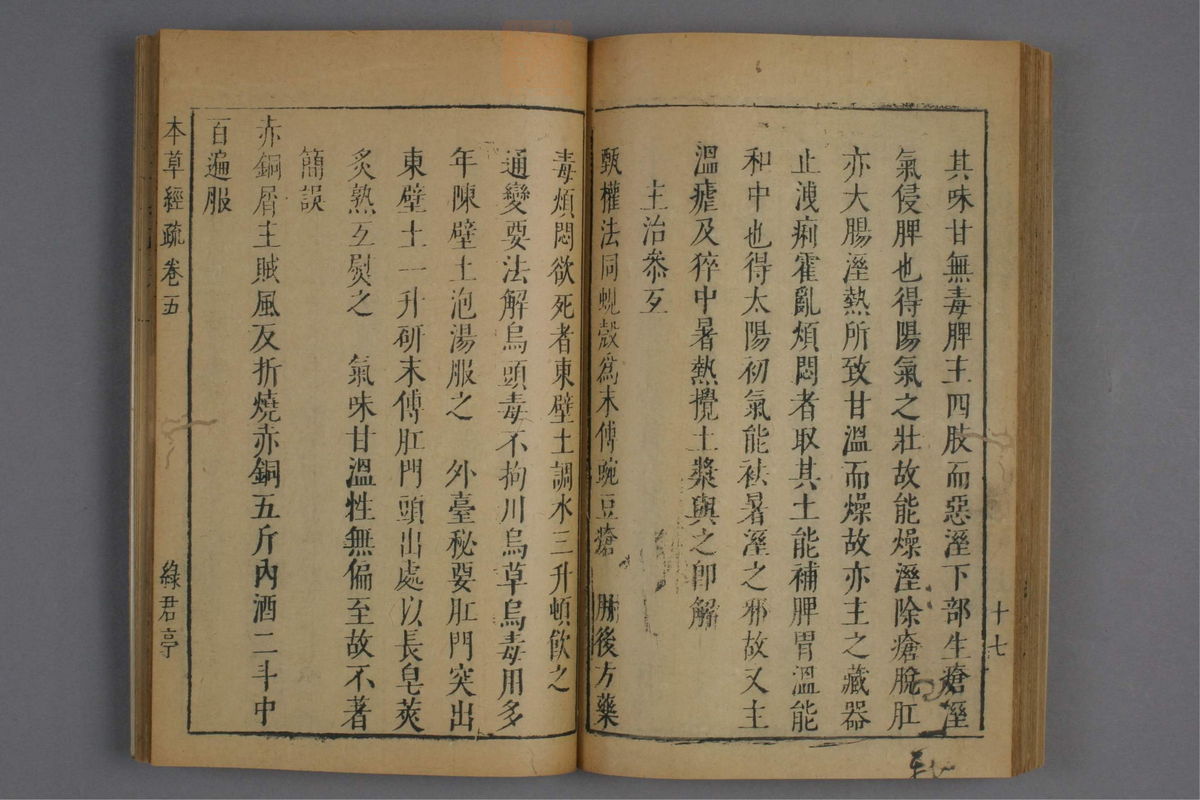 十七
其味甘無毒脾主四肢而惡溼下部生瘡溼
氣侵脾也得陽氣之壯故能燥溼除瘡脫肛
亦大腸溼熱所致甘溫而燥故亦主之藏器
止洩痢霍亂煩悶者取其土能補脾胃溫能
和中也得太陽初氣能袪暑溼之邪故又主
溫瘧及猝中暑熱攪土漿與之卽解
主治參互
甄權法同蜆殼爲末傅豌豆瘡 肘後方藥
毒煩悶欲死者東壁土調水三升頓飮之
通變要法解烏頭毒不拘川烏草烏毒用多
年陳壁土泡湯服之 外臺秘要肛門突出
東壁土一升研末傅肛門頭出處以長皂莢
炙熟互熨之 氣味甘溫性無偏至故不著
簡誤
赤銅屑主賊風反折燒赤銅五斤內酒二斗中
百遍服
本草經疏 卷五 綠君亭